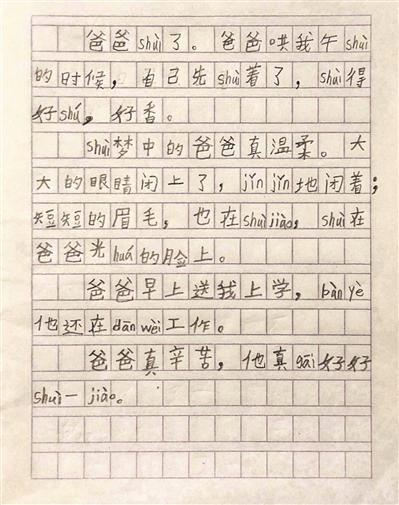 爸爸shuì了。爸爸哄我午shuì
的时候，自己先shuì着了，shuì得
好shú，好香。
shuì梦中的爸爸真温柔。大
大的眼睛闭上了，jǐn jǐn地闭着；
短短的眉毛，也在shuì jiào，shuì在
爸爸光huá的脸上。
爸爸早上送我上学，bàn yè
他还在dān wèi工作。
爸爸真辛苦，他真gāi好好
shuì一jiào。